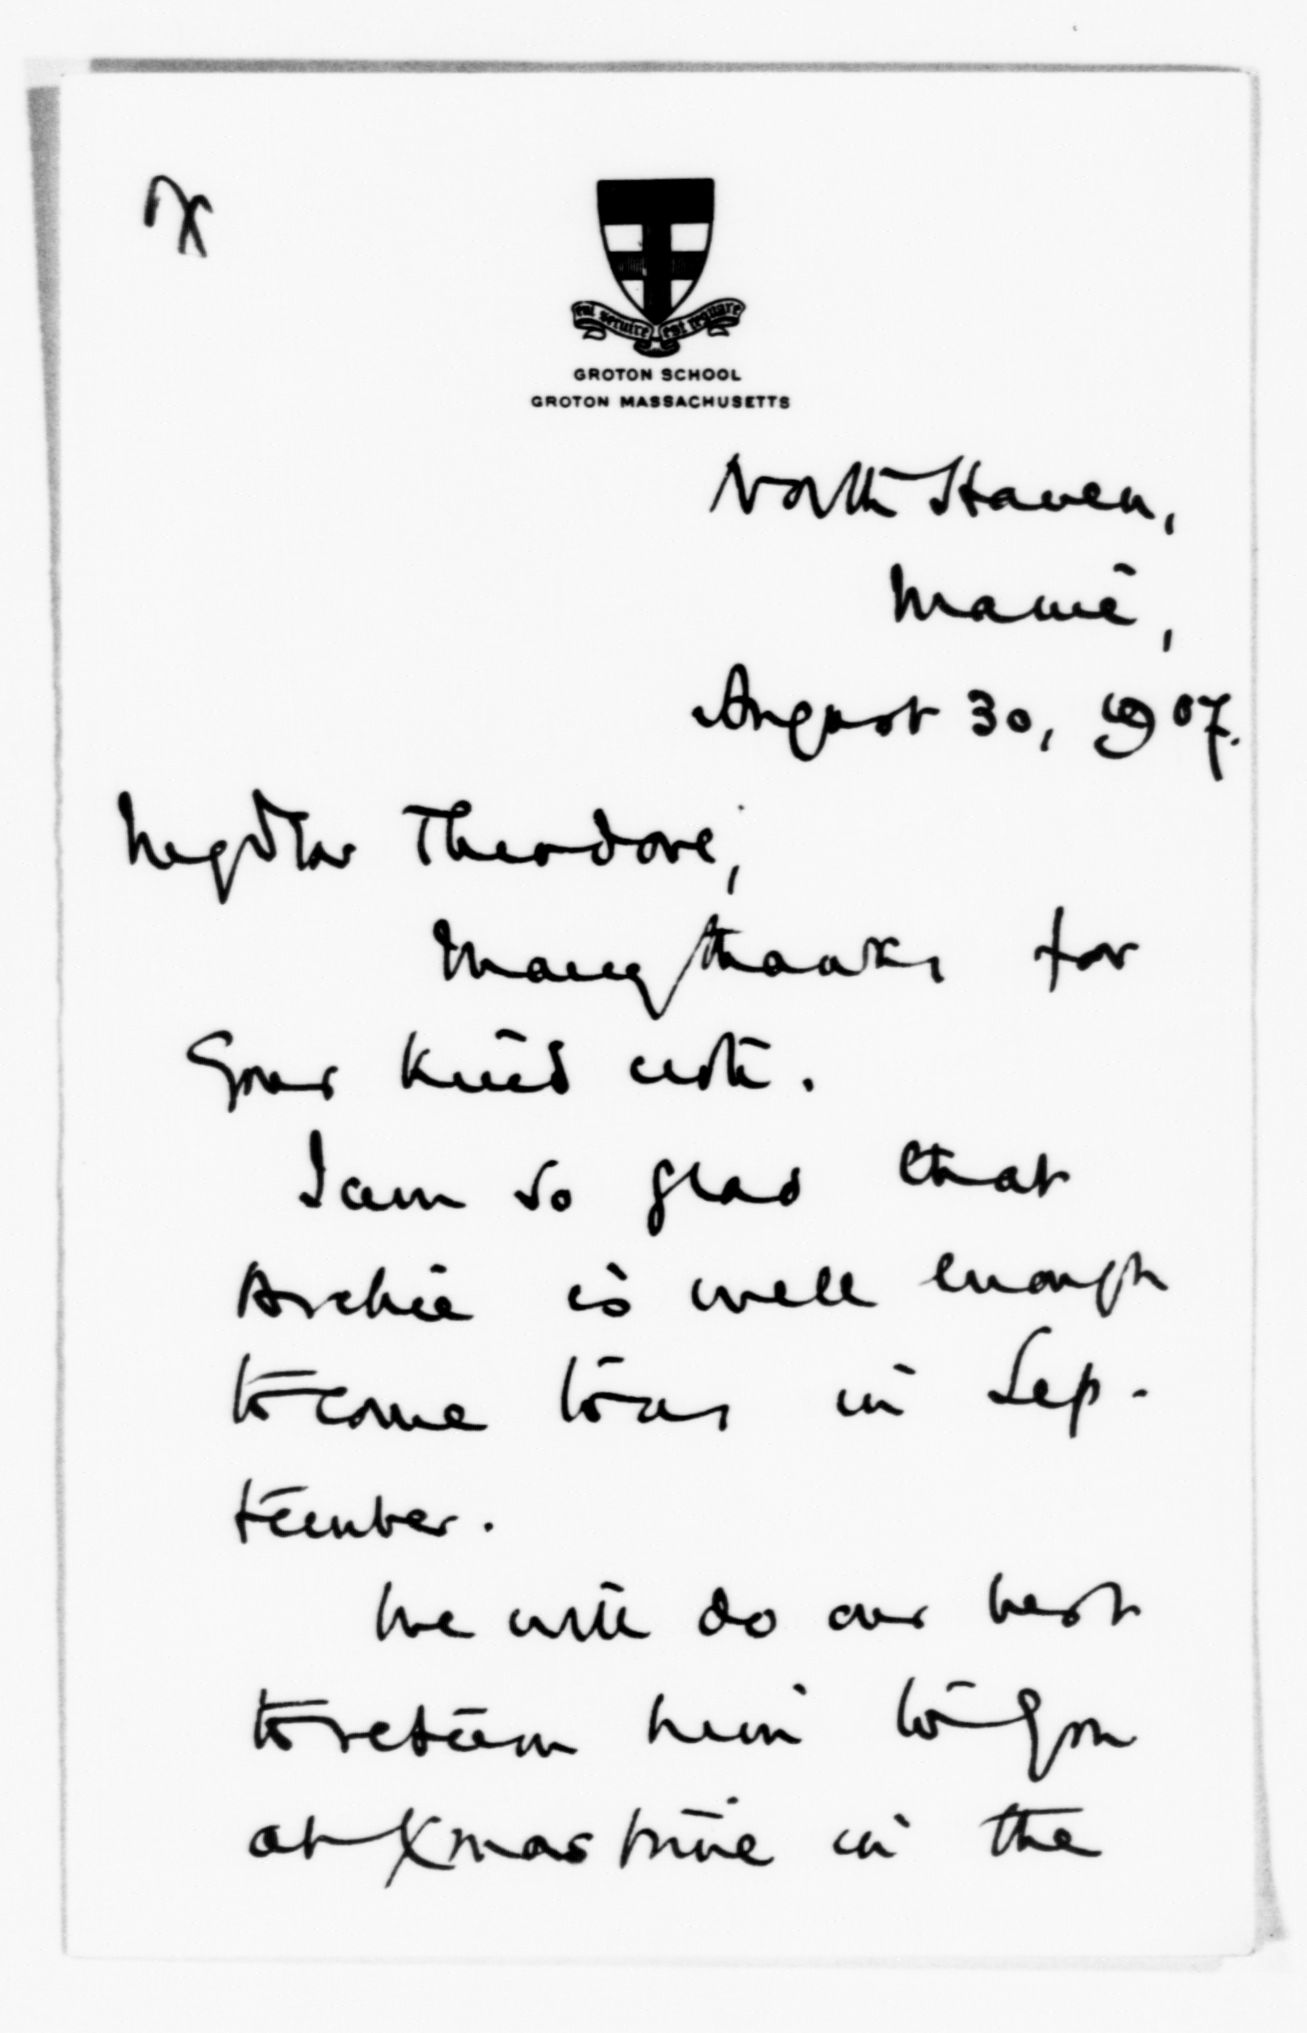 cui servire est regnare
GROTON SCHOOL
GROTON MASSACHUSETTS
North Haven,
Maine,
August 30, 1907.
My dear Theodore,
Many thanks for
your kind note.
I am so glad that
Archie is well enough
to come to us in Sep-
tember.
We will do our best
to return him to you
at Xmas time in the